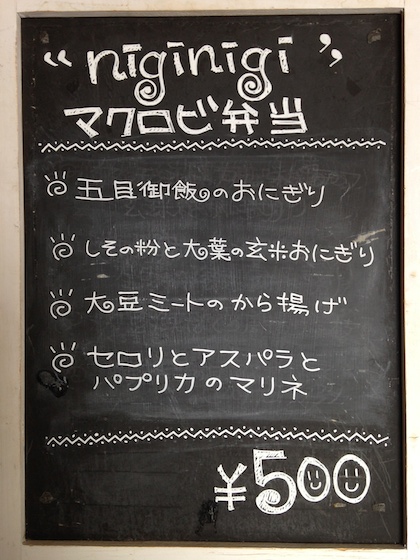 “niginigi”
マクロビ弁当
五目御飯のおにぎり
しその粉と大葉の玄米おにぎり
大豆ミートのから揚げ
セロリとアスパラと
パプリカのマリネ
¥500